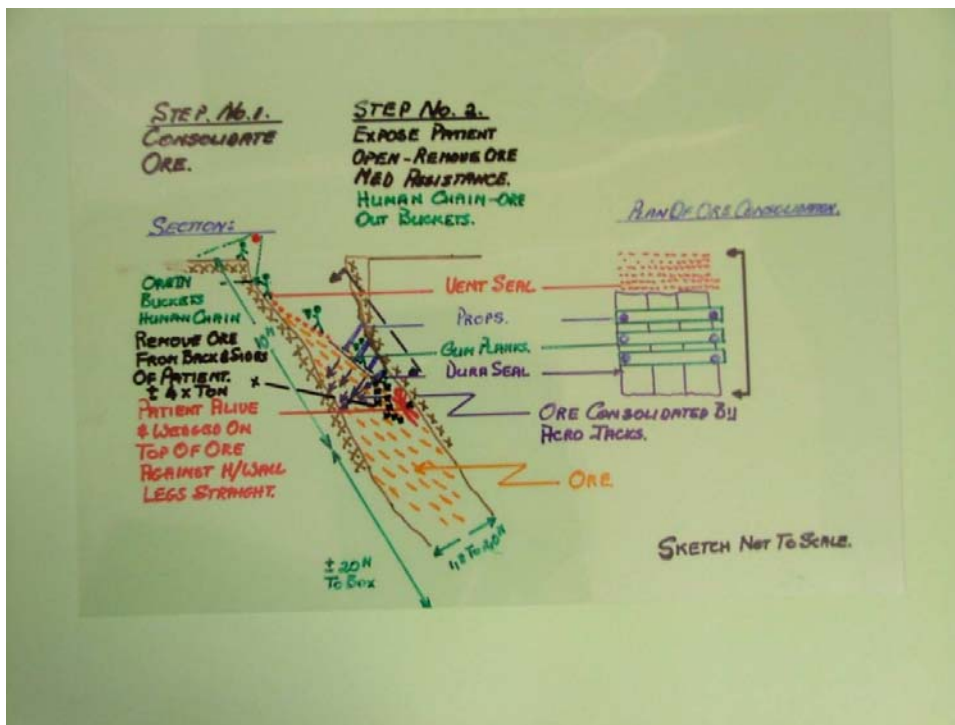 STEP. No. 1.
CONSOLIDATE
ORE.
STEP No. 2.
EXPOSE PATIENT
OPEN - REMOVE ORE
MED RESISTANCE.
HUMAN CHAIN - ORE
OUT BUCKETS.
SECTION:
PLAN OF ORE CONSOLIDATION.
BUCKETS
HUMAN CHAIN
REMOVE ORE
FROM BACK & SIDES
OF PATIENT.
± 4 x TON
PATIENT ALIVE
& WEDGED ON
TOP OF ORE
AGAINST H/WALL
LEGS STRAIGHT.
VENT SEAL
PROPS.
GUM PLANKS.
DURA SEAL
ORE CONSOLIDATED BY
ACRO JACKS.
ORE.
± 20M
TO BOX
SKETCH NOT TO SCALE.